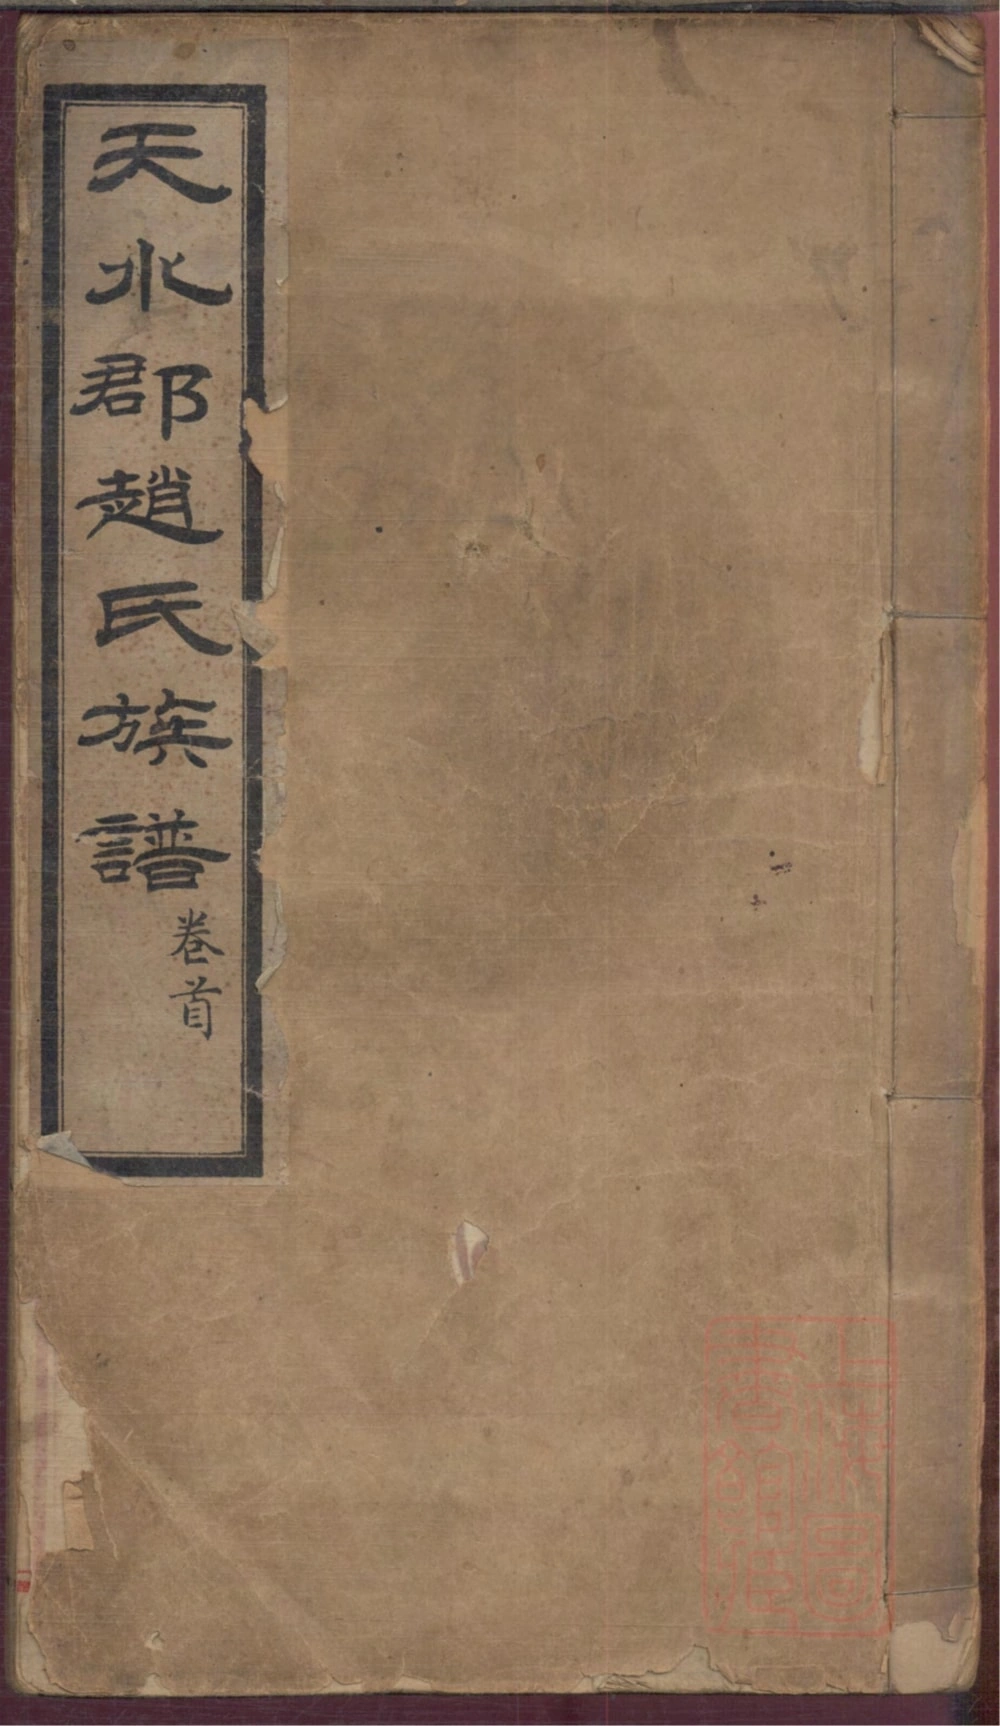 天水郡趙氏族譜
卷首
上海圖
書館藏